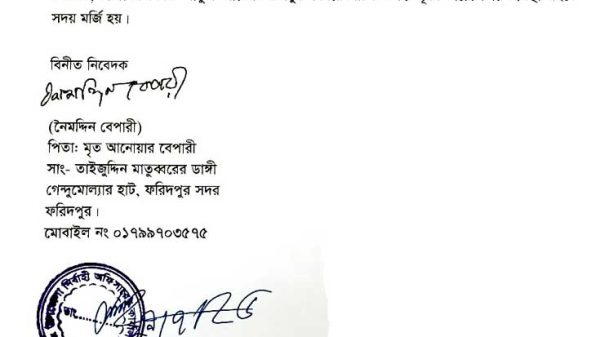 সদয় মর্জি হয়।
বিনীত নিবেদক
(নৈমদ্দিন বেপারী)
পিতা: মৃত আনোয়ার বেপারী
সাং- তাইজুদ্দিন মাতুব্বরের ডাঙ্গী
গেন্দুমোল্যার হাট, ফরিদপুর সদর
ফরিদপুর।
মোবাইল নং ০১৭৯৯৭০৩৫৭৫
নির্বাহী অফিসার
তাং